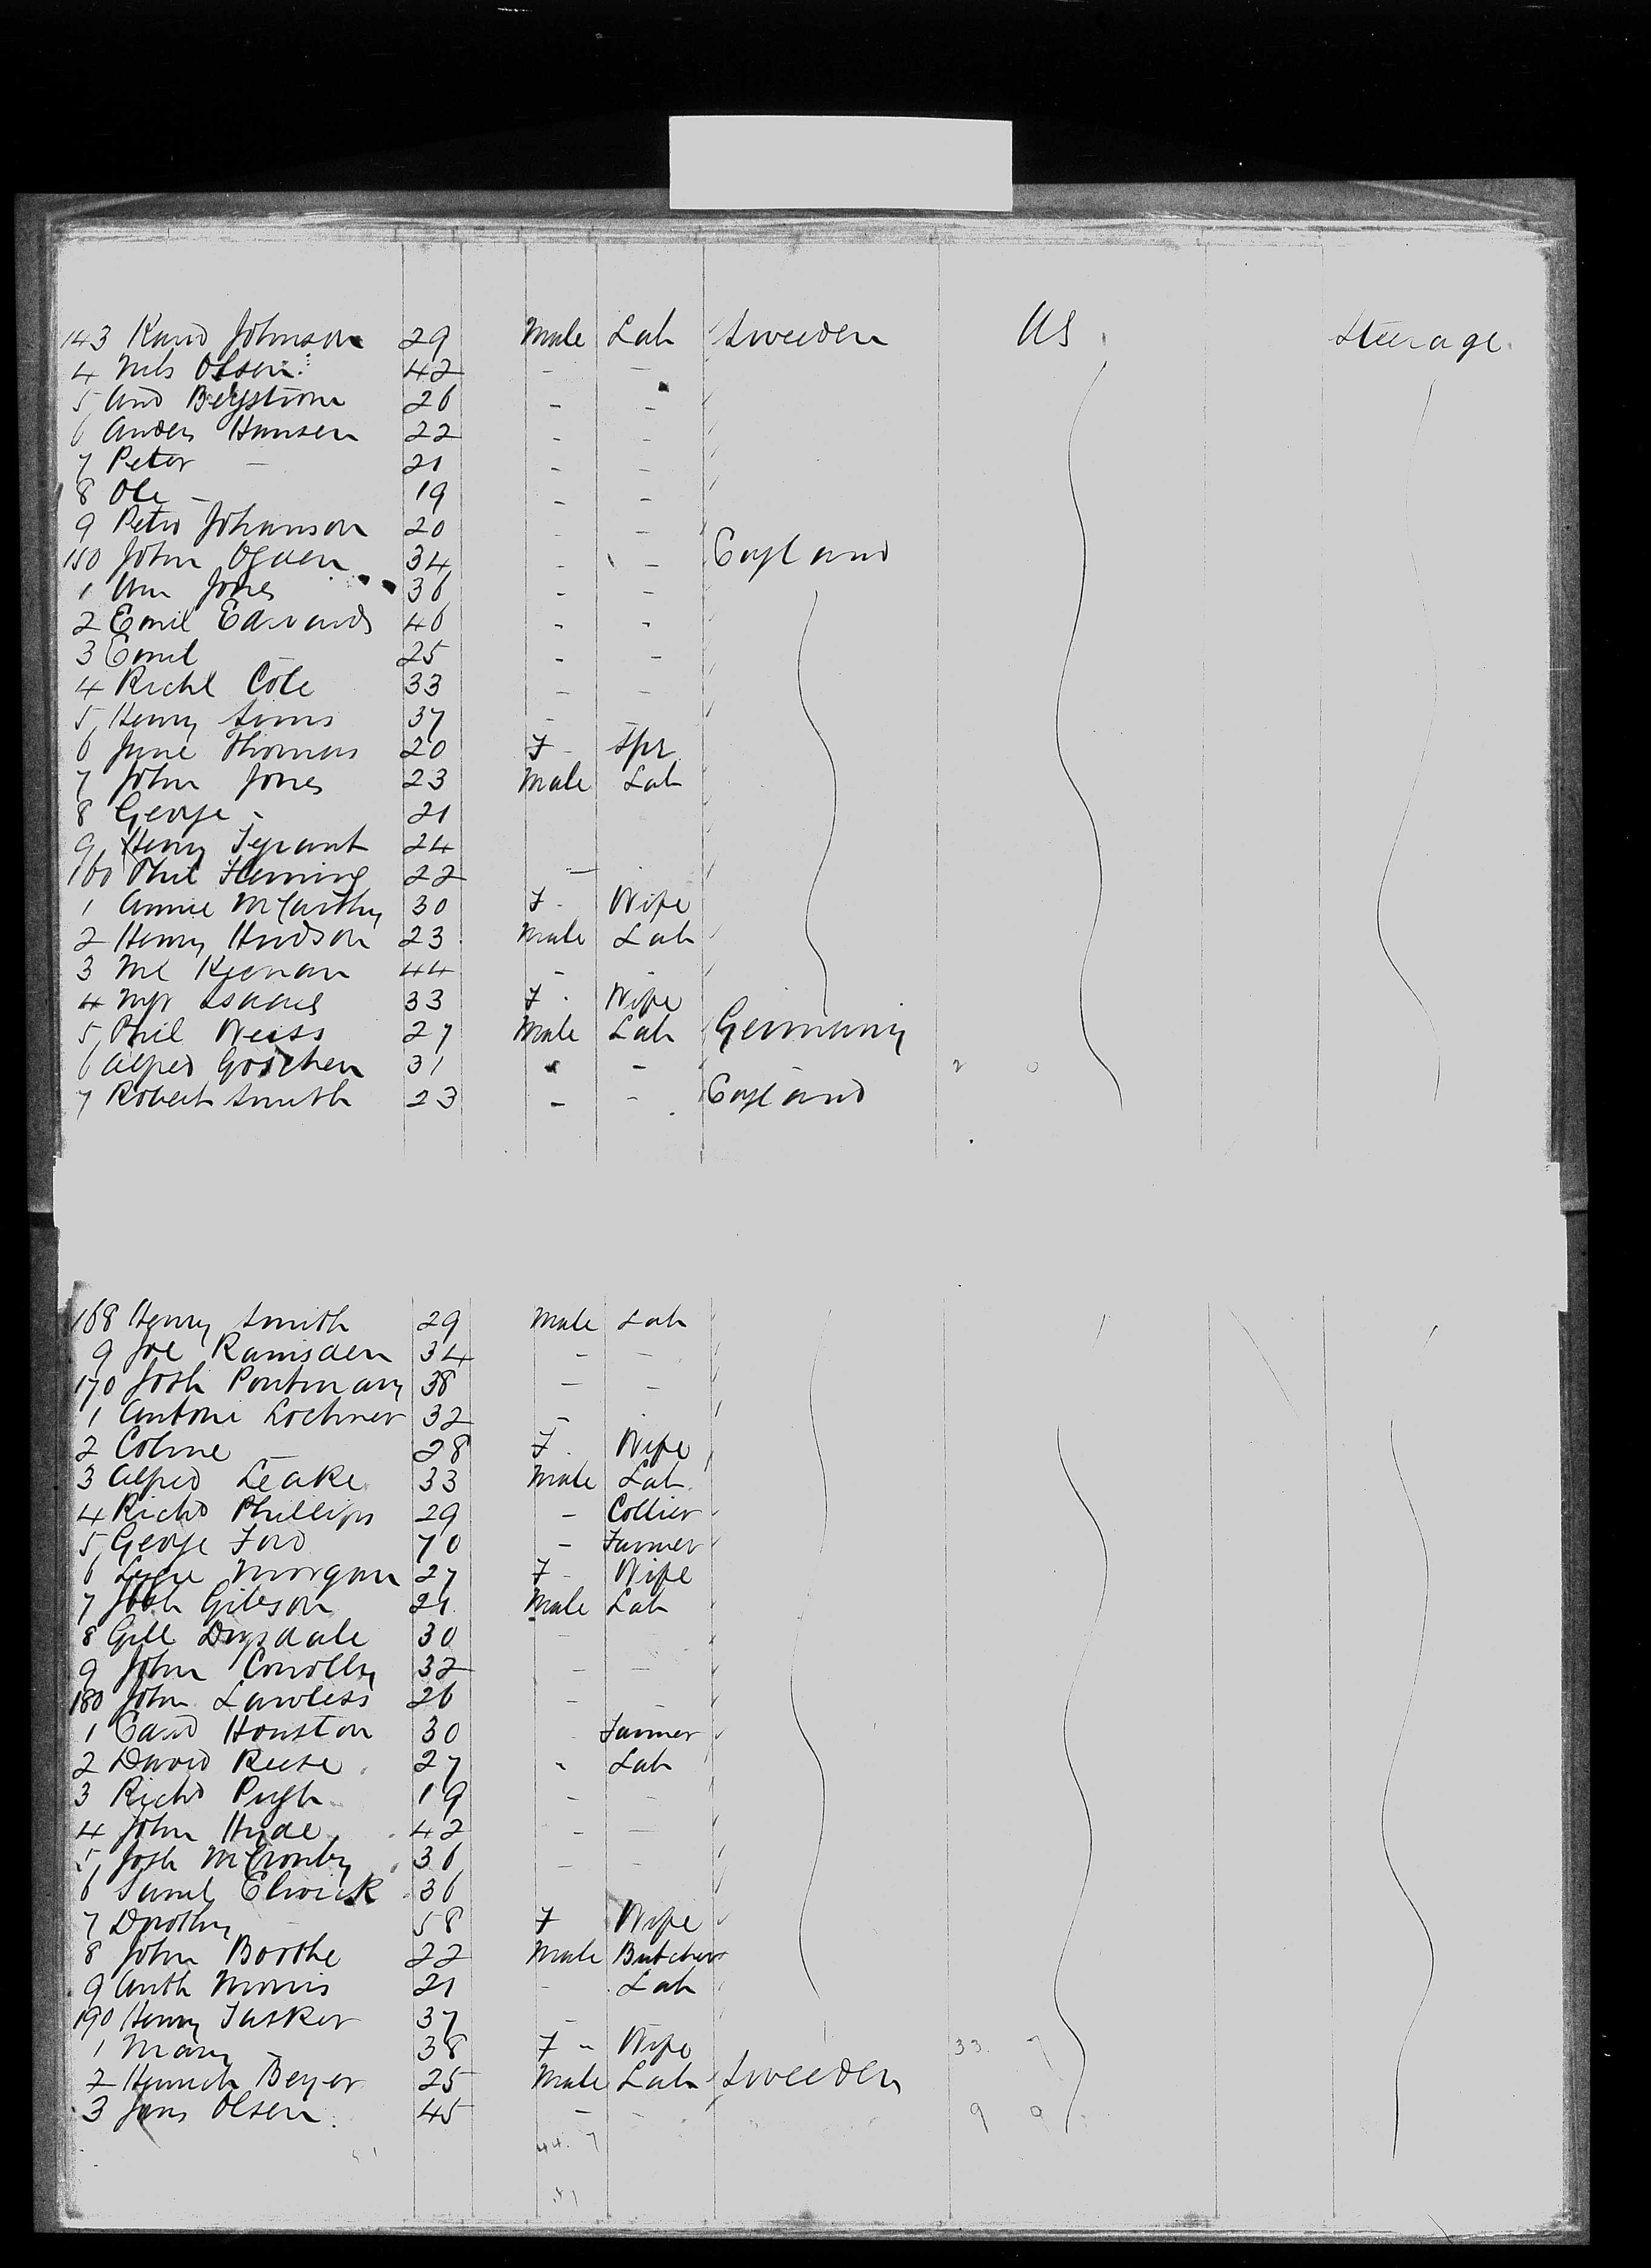 143 Kand Johnson 29 Male Lab Sweeden US Steerage
4 Nils Olsen 42 - -
5 And Bergstrom 26 - -
6 Anders Hansen 22 - -
7 Peter - 21 - -
8 Ole - 19 - -
9 Peter Johanson 20 - -
150 John Ogden 34 - - England
1 Wm Jones 36 - -
2 Emil Edwards 46 - -
3 Emil - 25 - -
4 Richd Cole 33 - -
5 Henry Sims 37 - -
6 Jane Thomas 20 F - Spr
7 John Jones 23 Male Lab
8 George - 21
9 Henry 24
160 Phil Fleming 22 -
1 Annie McCarthy 30 F - Wife
2 Henry Hudson 23 Male Lab
3 Ml Keenan 44 - -
4 Isaacs 33 F - Wife
5 Phil Weiss 27 Male Lab Germany
6 Alfred Goschen 31 - -
7 Robert Smith 23 - - England
168 Henry Smith 29 Male Lab
9 Joe Ramsden 34 - -
170 Josh 38 - -
1 Antoni Lochner 32 -
2 - 28 F - Wife
3 Alfred Leake 33 Male Lab
4 Richd Phillips 29 - Collier
5 George Ford 70 - Farmer
6 Morgan 27 F - Wife
7 Gibson 21 Male Lab
8 Gill Drysdale 30 -
9 John Conolly 32 - -
180 John Lawless 26 - -
1 Houston 30 Farmer
2 David Reese 27 - Lab
3 Richd Pugh 19 - -
4 John Hyde 42 - -
5 Josh 36 - -
6 Saml Elwick 36
7 Dorothy - 58 F Wife
8 John Boothe 22 Male Butcher
9 Anth Morris 21 - Lab
190 Henry Tasker 37 -
1 Mary - 38 F - Wife
2 Henrich Beyer 25 Male Lab Sweeden
3 Jens Olsen 45 - -